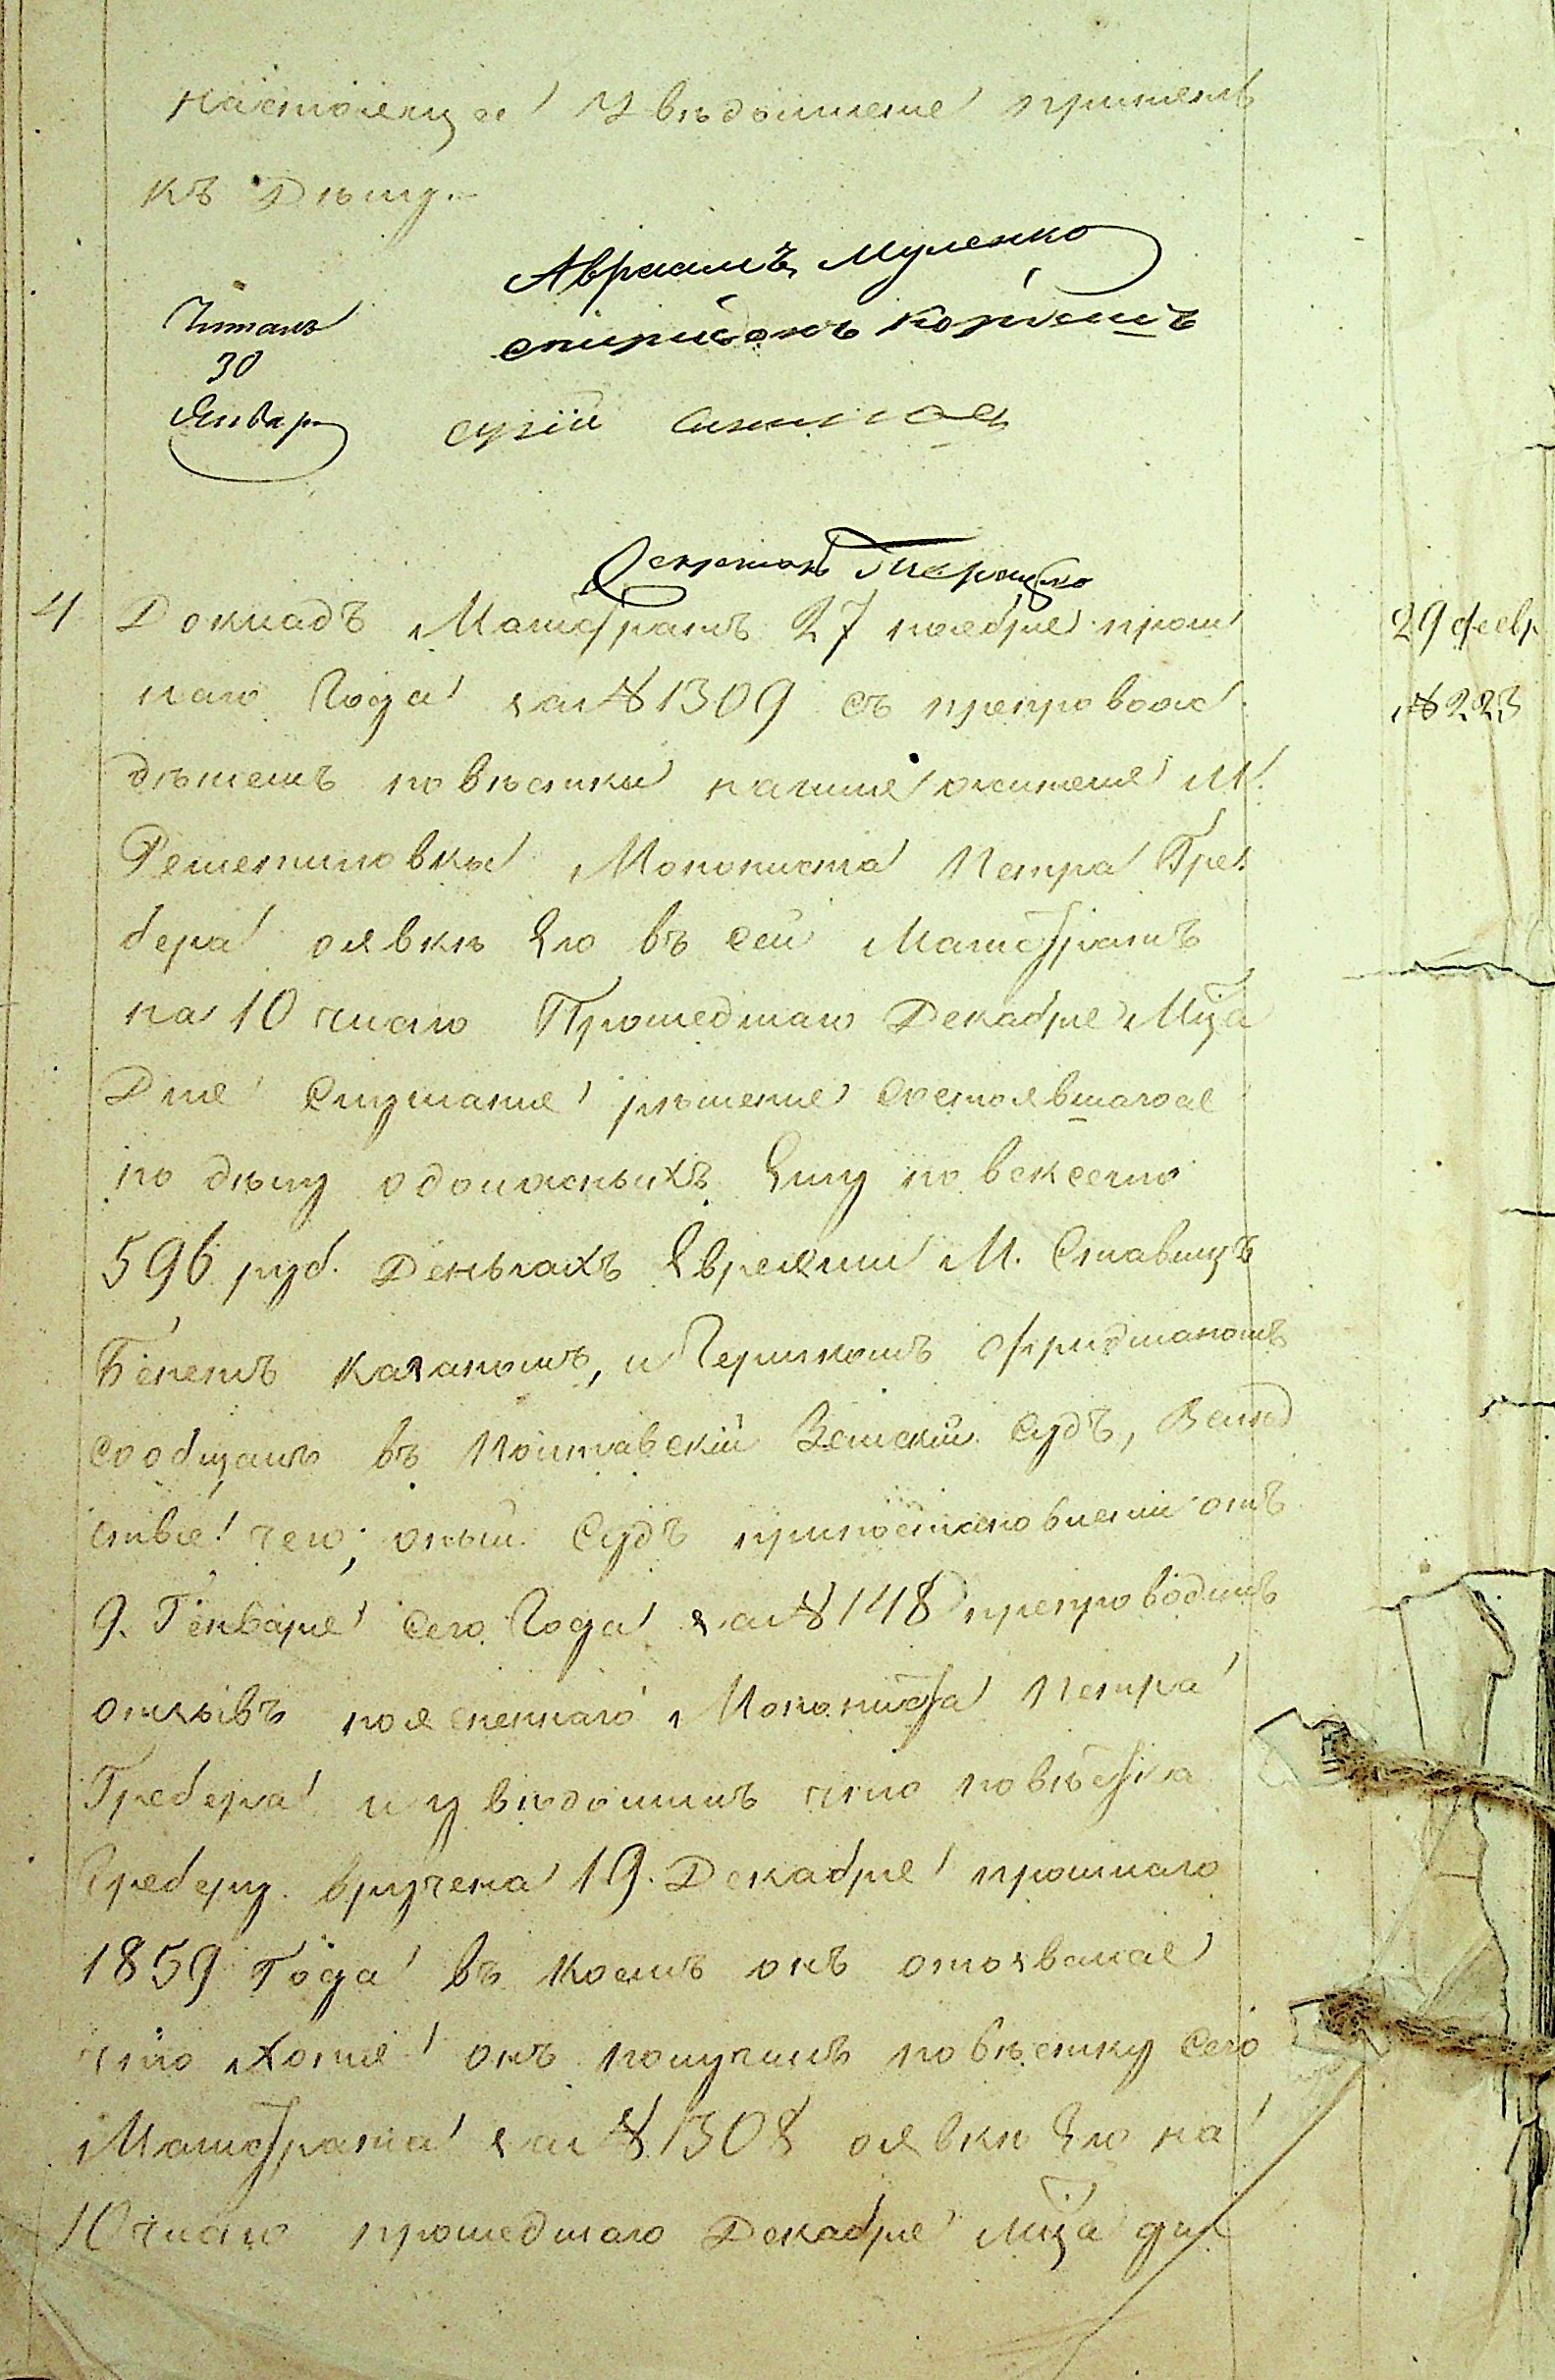 настоящее Увѣдомленіе пріобщить
къ Дѣлу.-
Авраамъ Муленко
Читалъ
30
Январ
Секретарь Терещенко
4 Докладъ Магистратъ 27 ноября прош
29 февр
лаго Года за № 1309 съ препровож
№ 223
дѣніемъ повѣстки нажитіе жителя М.
Решетиловки Колониста Петра Гре
бера оявкѣ Его въ сей Магистратъ
на 10 число Прошедшаго Декабря Мца
Для Слушанія рѣшенія Состоявшагося
по дѣлу одолжныхъ Ему по векселю
596 руб. Деньгахъ Евреями М. Ставищъ
Каганомъ, и Гершкомъ Фридманомъ
сообщалъ въ Полтавскій Земскій Судъ, Вслѣд
ствіе чего, оный Судъ приностановленіи отъ
9. Генваря Сего Года за № 148 препроводилъ
отзывъ поясненнаго Колониста Петра
Гребера и увѣдомилъ что повѣстка
Греберу вручена 19. Декабря прошлаго
1859 Года въ коемъ онъ отозвался
что хотя онъ получилъ повѣстку сего
Магистрата за № 1308 оявкѣ Его на
10 число прошедшаго Декабря мца для